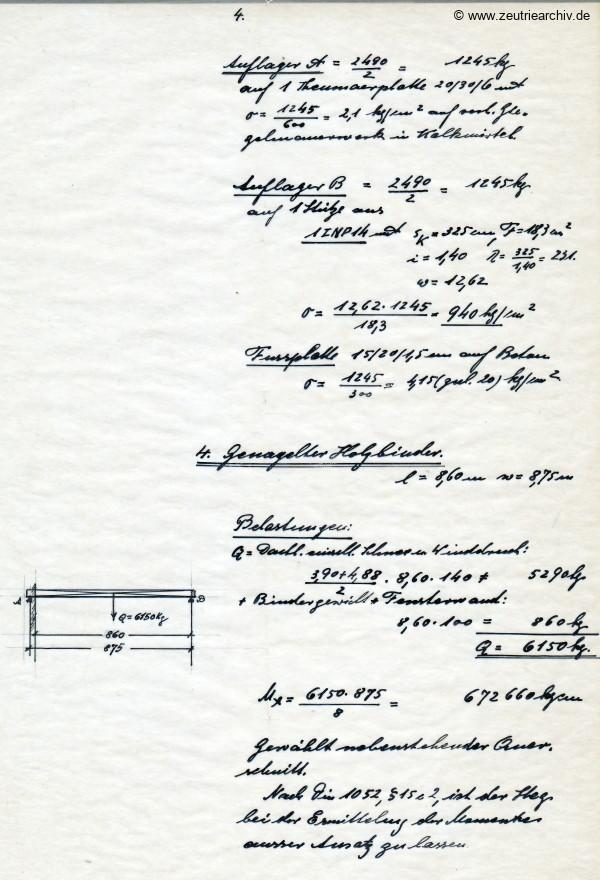 4.
© www.zeutriearchiv.de
Auflager A = 2490/2 = 1245 kg
auf 1 Theumaerplatte 20/30/6 mit
σ = 1245/600 = 2,1 kg/cm² auf vorh. Zie-
gelmauerwerk in Kalkmörtel.
Auflager B = 2490/2 = 1245 kg
auf 1 Stütze aus
1 INP14 mit sK = 325 cm, F = 18,3 cm²
i = 1,40 λ = 325/1,40 = 231.
ω = 12,62
σ = 12,62 · 1245/18,3 = 940 kg/cm²
Fussplatte 15/20/1,5 cm auf Beton
σ = 1245/300 = 4,15 (zul. 20) kg/cm²
4. Genagelter Holzbinder.
l = 8,60 m w = 8,75 m
Belastungen:
Q = Dachl. einschl. Schnee u. Winddruck:
3,90 + 4,88/2 · 8,60 · 140 = 5290 kg
+ Bindergewicht + Fensterwand:
8,60 · 100 = 860 kg
Q = 6150 kg.
A B
Q = 6150 kg
860
875
Mx = 6150 · 875/8 = 672 660 kgcm
Gewählt nebenstehender Quer-
schnitt.
Nach Din 1052, § 15 c 2, ist der Steg
bei der Ermittelung des Momentes
ausser Ansatz zu lassen